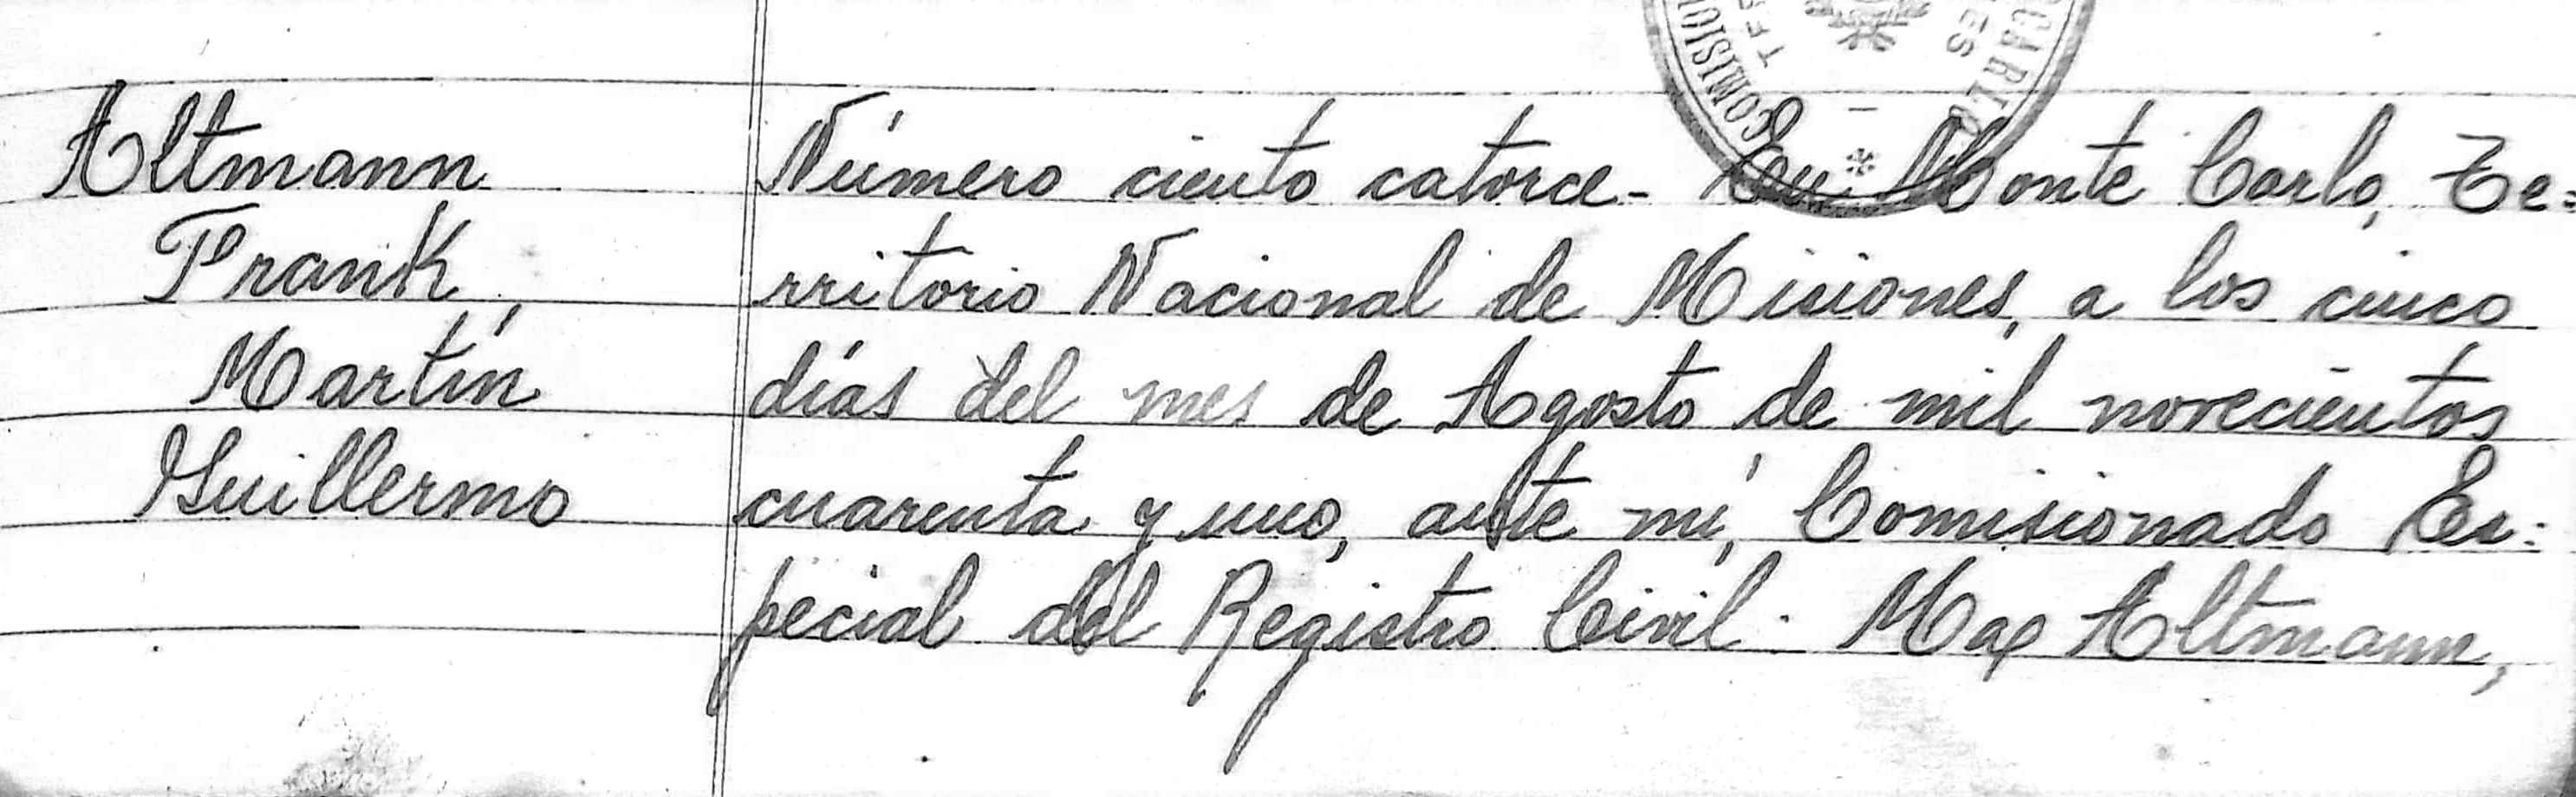 Altmann
Frank,
Martín
Guillermo
Número ciento catorce - En Monte Carlo, Te=
rritorio Nacional de Misiones, a los cinco
días del mes de Agosto de mil novecientos
cuarenta y uno, ante mí, Comisionado Es-
pecial del Registro Civil. Max Altmann,
COMISIO
CARLO
TER
ES